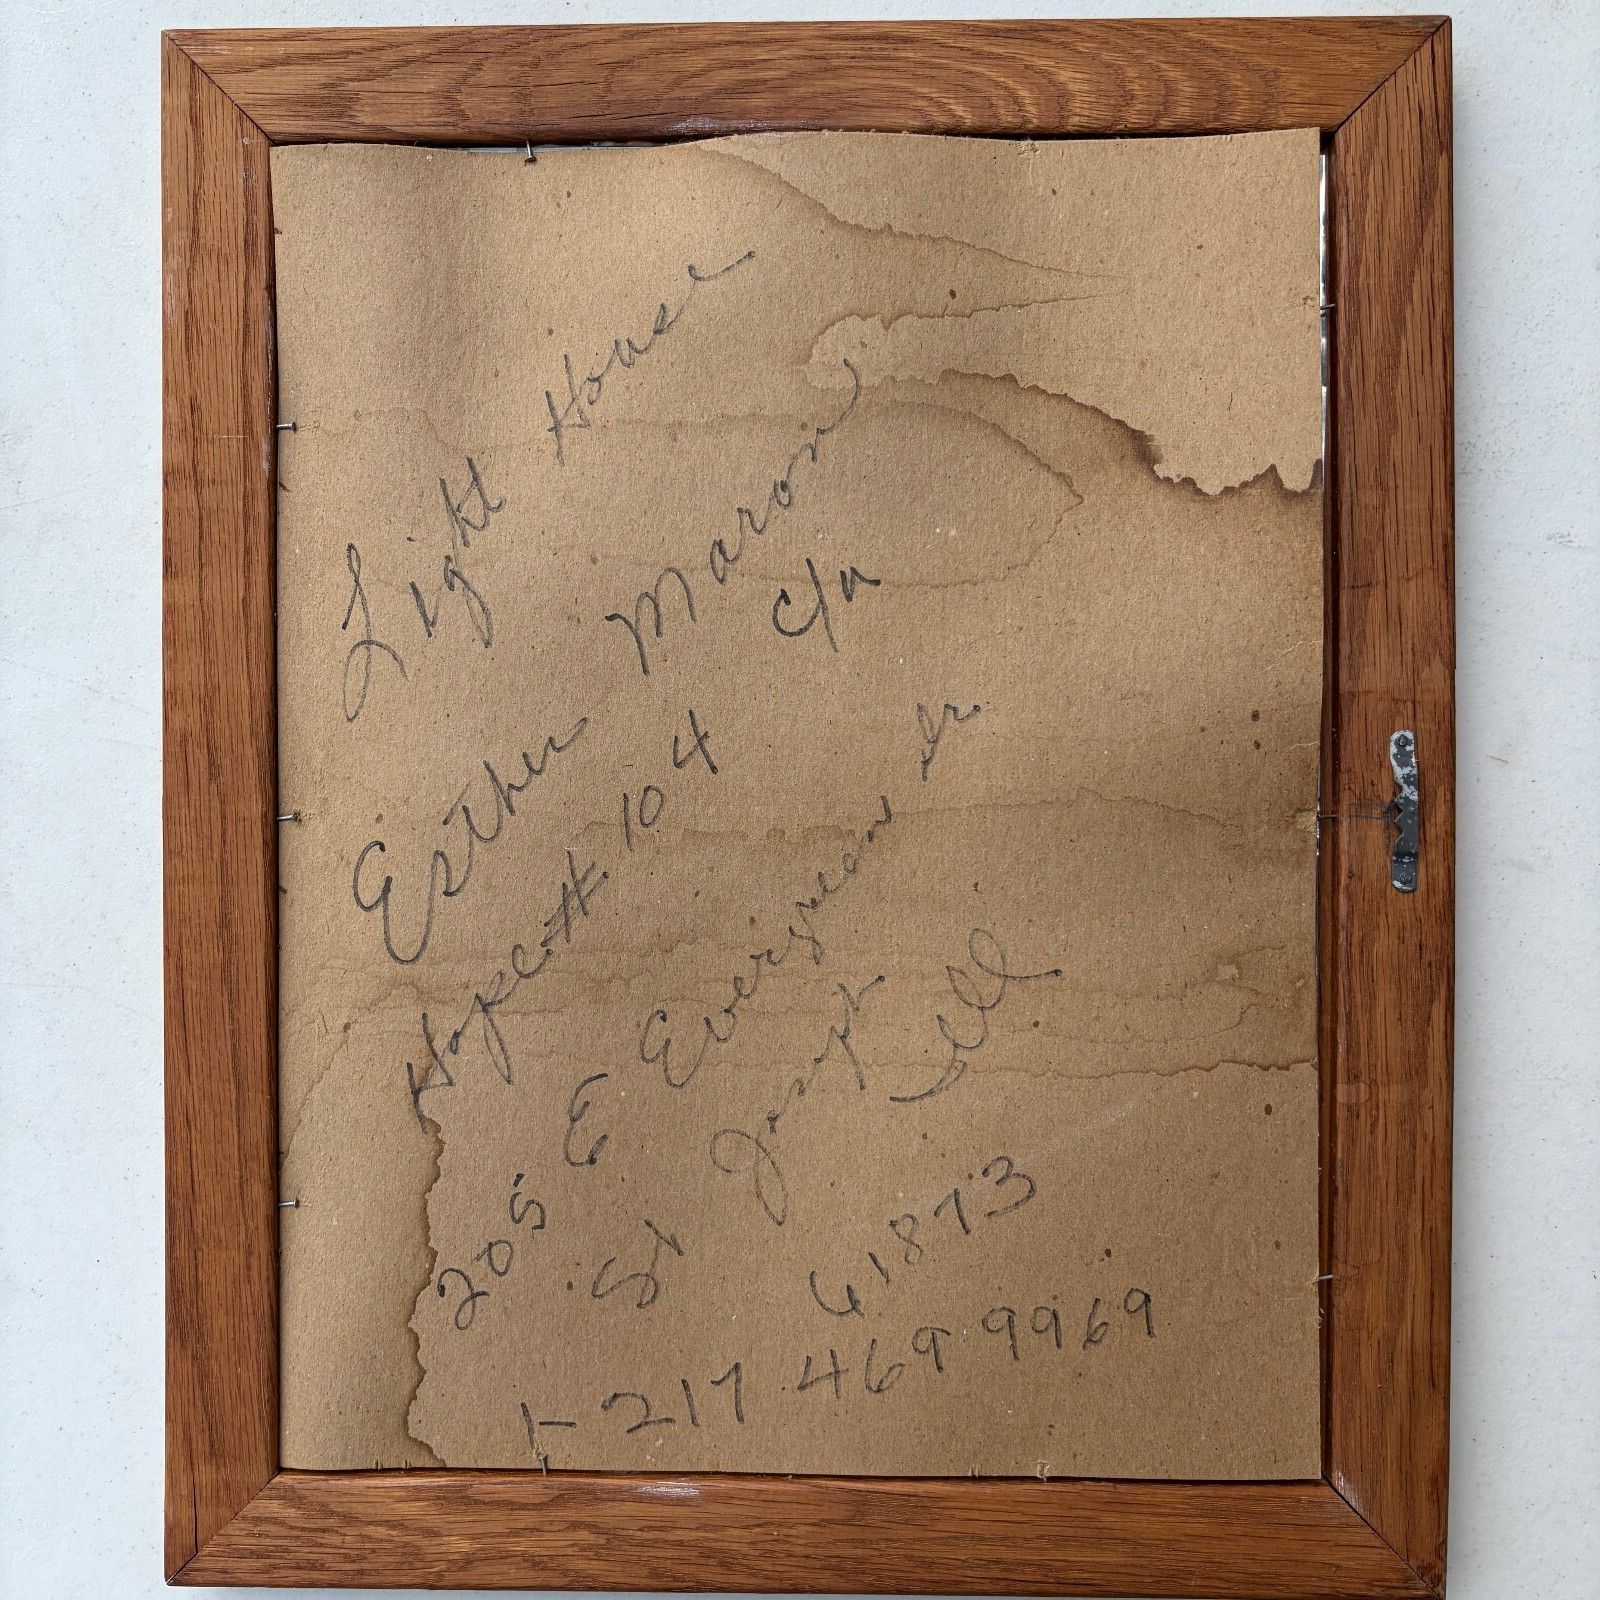 Light House
Esther Maron
c/o
Hope # 104
205 E Evergreen Dr.
St Joseph
Ill
61873
1-217 469 9969